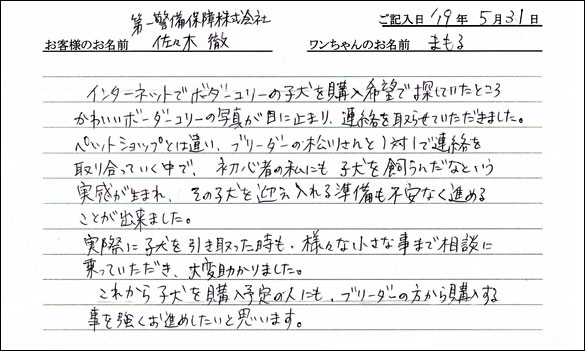 第一警備保障株式会社
ご記入日 '19年 5月31日
お客様のお名前 佐々木 徹 ワンちゃんのお名前 まもる
インターネットでボーダーコリーの子犬を購入希望で探していたところ
かわいいボーダーコリーの写真が目に止まり、連絡を取らせていただきました。
ペットショップとは違い、ブリーダーの松川さんと1対1で連絡を
取り合っていく中で、初心者の私にも子犬を飼うんだなという
実感が生まれ、その子犬を迎え入れる準備も不安なく進める
ことが出来ました。
実際に子犬を引き取った時も、様々な小さな事まで相談に
乗っていただき、大変助かりました。
これから子犬を購入予定の人にも、ブリーダーの方から購入する
事を強くお進めしたいと思います。